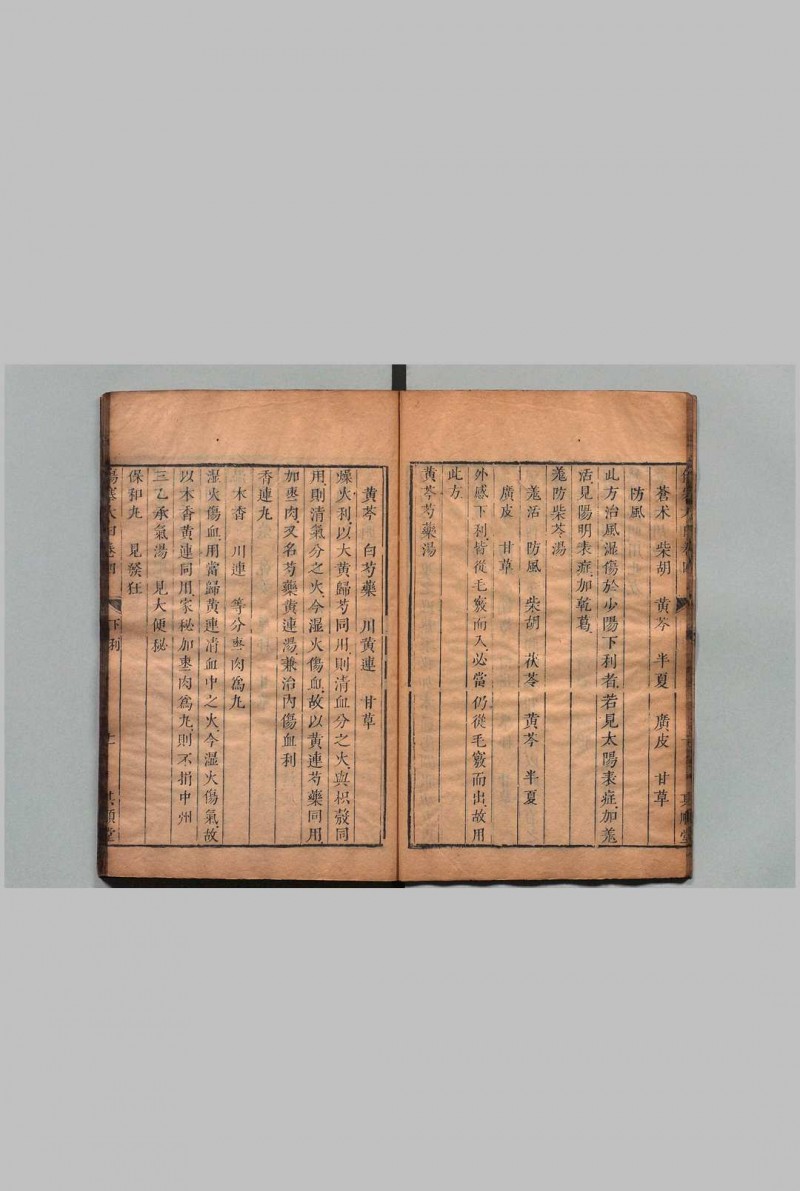 蒼术 柴胡 黄芩 半夏 廣皮 甘草
防風
此方治風濕傷於少陽下利者若見太陽表症加羗
活見陽明表症加乾葛
羗防柴芩湯
羗活 防風 柴胡 茯苓 黄芩 半夏
廣皮 甘草
外感下利皆從毛竅而入必當仍從毛竅而出故用
此方
黄芩芍藥湯
黄芩 白芍藥 川黄連 甘草
燥火利以大黄歸芍同用則清血分之火與枳殼同
用則清氣分之火今濕火傷血故以黄連芍藥同用
加枣肉又名芍藥黄連湯兼治内傷血利
香連丸
木香 川連 等分枣肉爲丸
湿火傷血用當歸黄連清血中之火今濕火傷氣故
以木香黄連同用家秘加枣肉爲丸則不損中州
三乙承氣湯 見大便秘
保和丸 見發狂
傷寒大白卷四 下利 其順堂